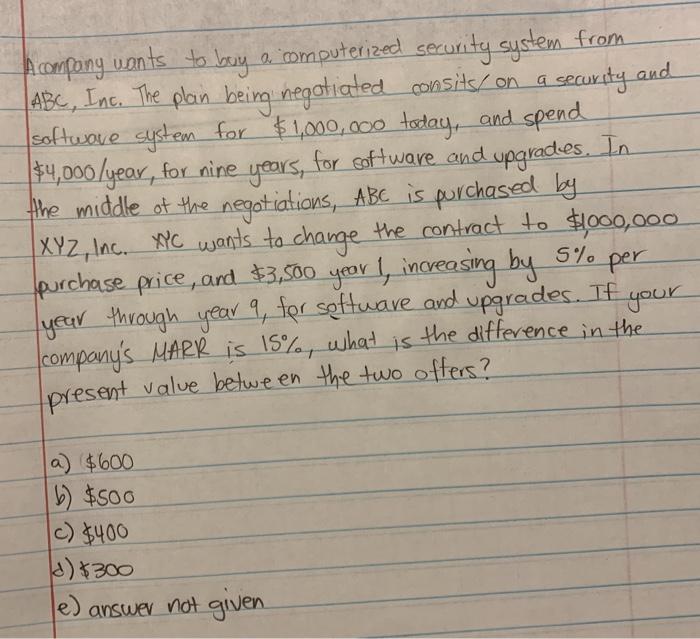 A company wants to buy a computerized security system from
ABC, Inc. The plan being negotiated consits/ on a security and
software system for $1,000,000 today, and spend
$4,000/year, for nine years, for software and upgrades. In
the middle of the negotiations, ABC is purchased by
XYZ, Inc. XYC wants to change the contract to $1,000,000
purchase price, and $3,500 year 1, increasing by 5% per
year through year 9, for software and upgrades. If your
company's MARR is 15%, what is the difference in the
present value between the two offers?
a) $600
b) $500
c) $400
d) $300
e) answer not given